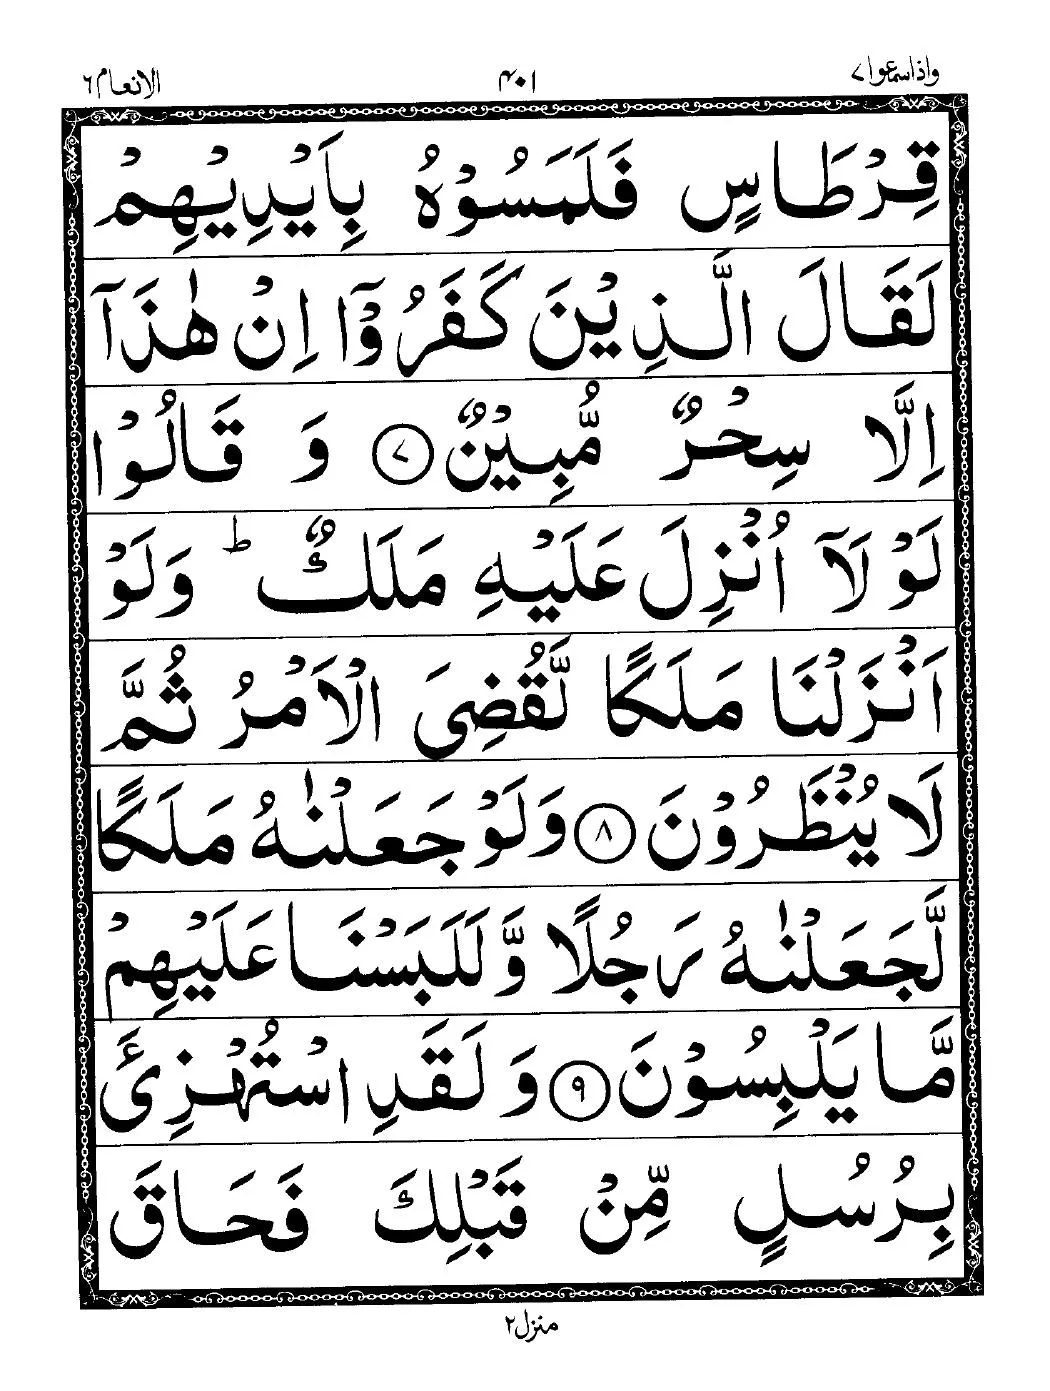 واذاسمعوا٧ ۴۰۱ الانعام٦
قِرْطَاسٍ فَلَمَسُوْهُ بِاَيْدِيْهِمْ
لَقَالَ الَّذِيْنَ كَفَرُوْۤا اِنْ هٰذَاۤ
اِلَّا سِحْرٌ مُّبِيْنٌ ﴿٧﴾ وَ قَالُوْا
لَوْلَاۤ اُنْزِلَ عَلَيْهِ مَلَكٌ ؕ وَلَوْ
اَنْزَلْنَا مَلَكًا لَّقُضِىَ الْاَمْرُ ثُمَّ
لَا يُنْظَرُوْنَ ﴿٨﴾ وَلَوْ جَعَلْنٰهُ مَلَكًا
لَّجَعَلْنٰهُ رَجُلًا وَّ لَلَبَسْنَا عَلَيْهِمْ
مَّا يَلْبِسُوْنَ ﴿٩﴾ وَ لَقَدِ اسْتُهْزِئَ
بِرُسُلٍ مِّنْ قَبْلِكَ فَحَاقَ
منزل٢